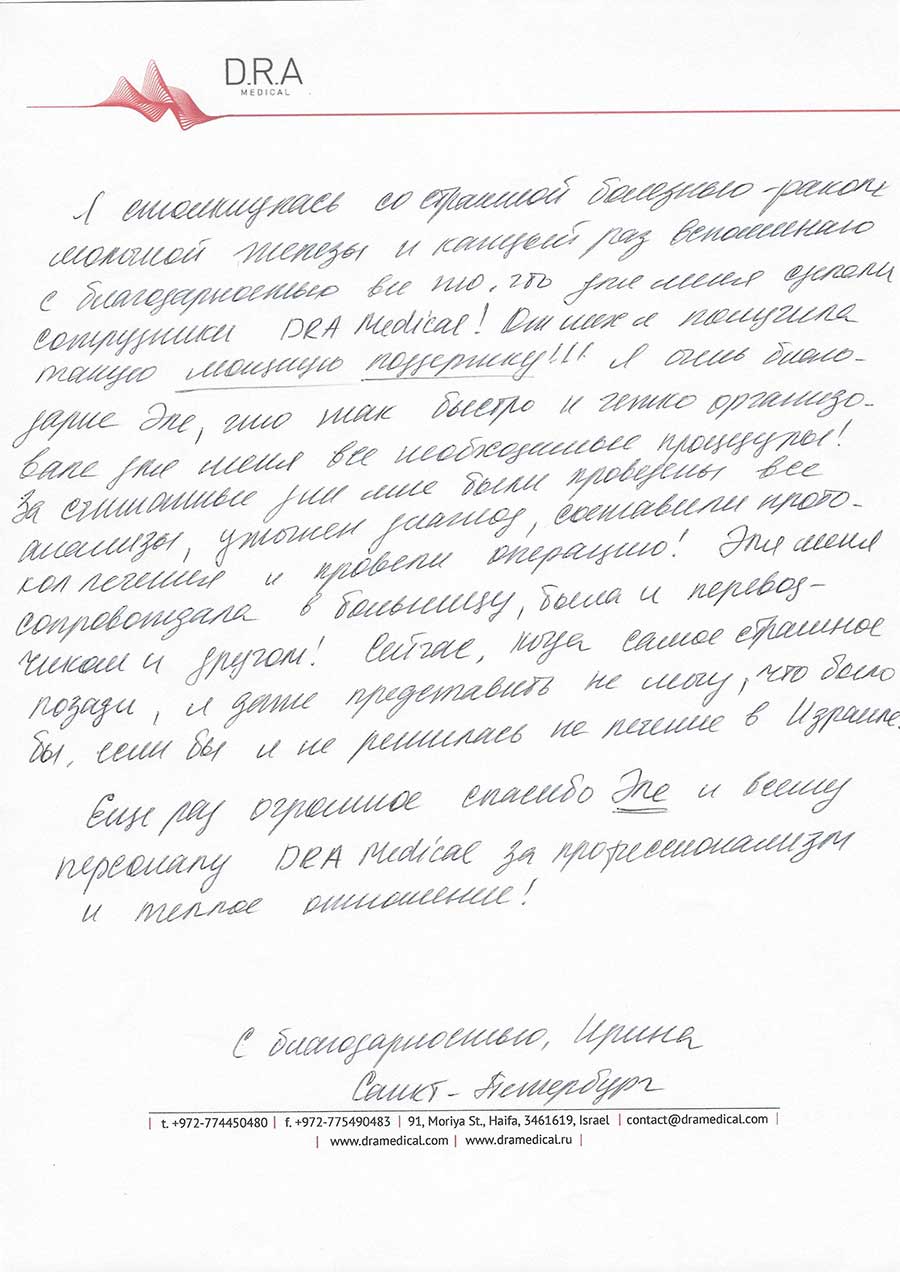 D.R.A
MEDICAL
Я столкнулась со страшной болезнью - раком
молочной железы и каждый раз вспоминаю
с благодарностью все то, что для меня сделали
сотрудники DRA Medical! От них я получила
такую мощную поддержку!!! Я очень благо-
дарна Эле, что так быстро и четко организо-
вала для меня все необходимые процедуры!
За считанные дни мне были проведены все
анализы, уточнен диагноз, составили прото-
кол лечения и провели операцию! Эля меня
сопровождала в больницу, была и перевод-
чиком и другом! Сейчас, когда самое страшное
позади, я даже представить не могу, что было
бы, если бы я не решилась на лечение в Израиле.
Еще раз огромное спасибо Эле и всему
персоналу DRA Medical за профессионализм
и теплое отношение!
С благодарностью, Ирина
Санкт-Петербург
| t. +972-774450480 | f. +972-775490483 | 91, Moriya St., Haifa, 3461619, Israel | contact@dramedical.com |
| www.dramedical.com | www.dramedical.ru |